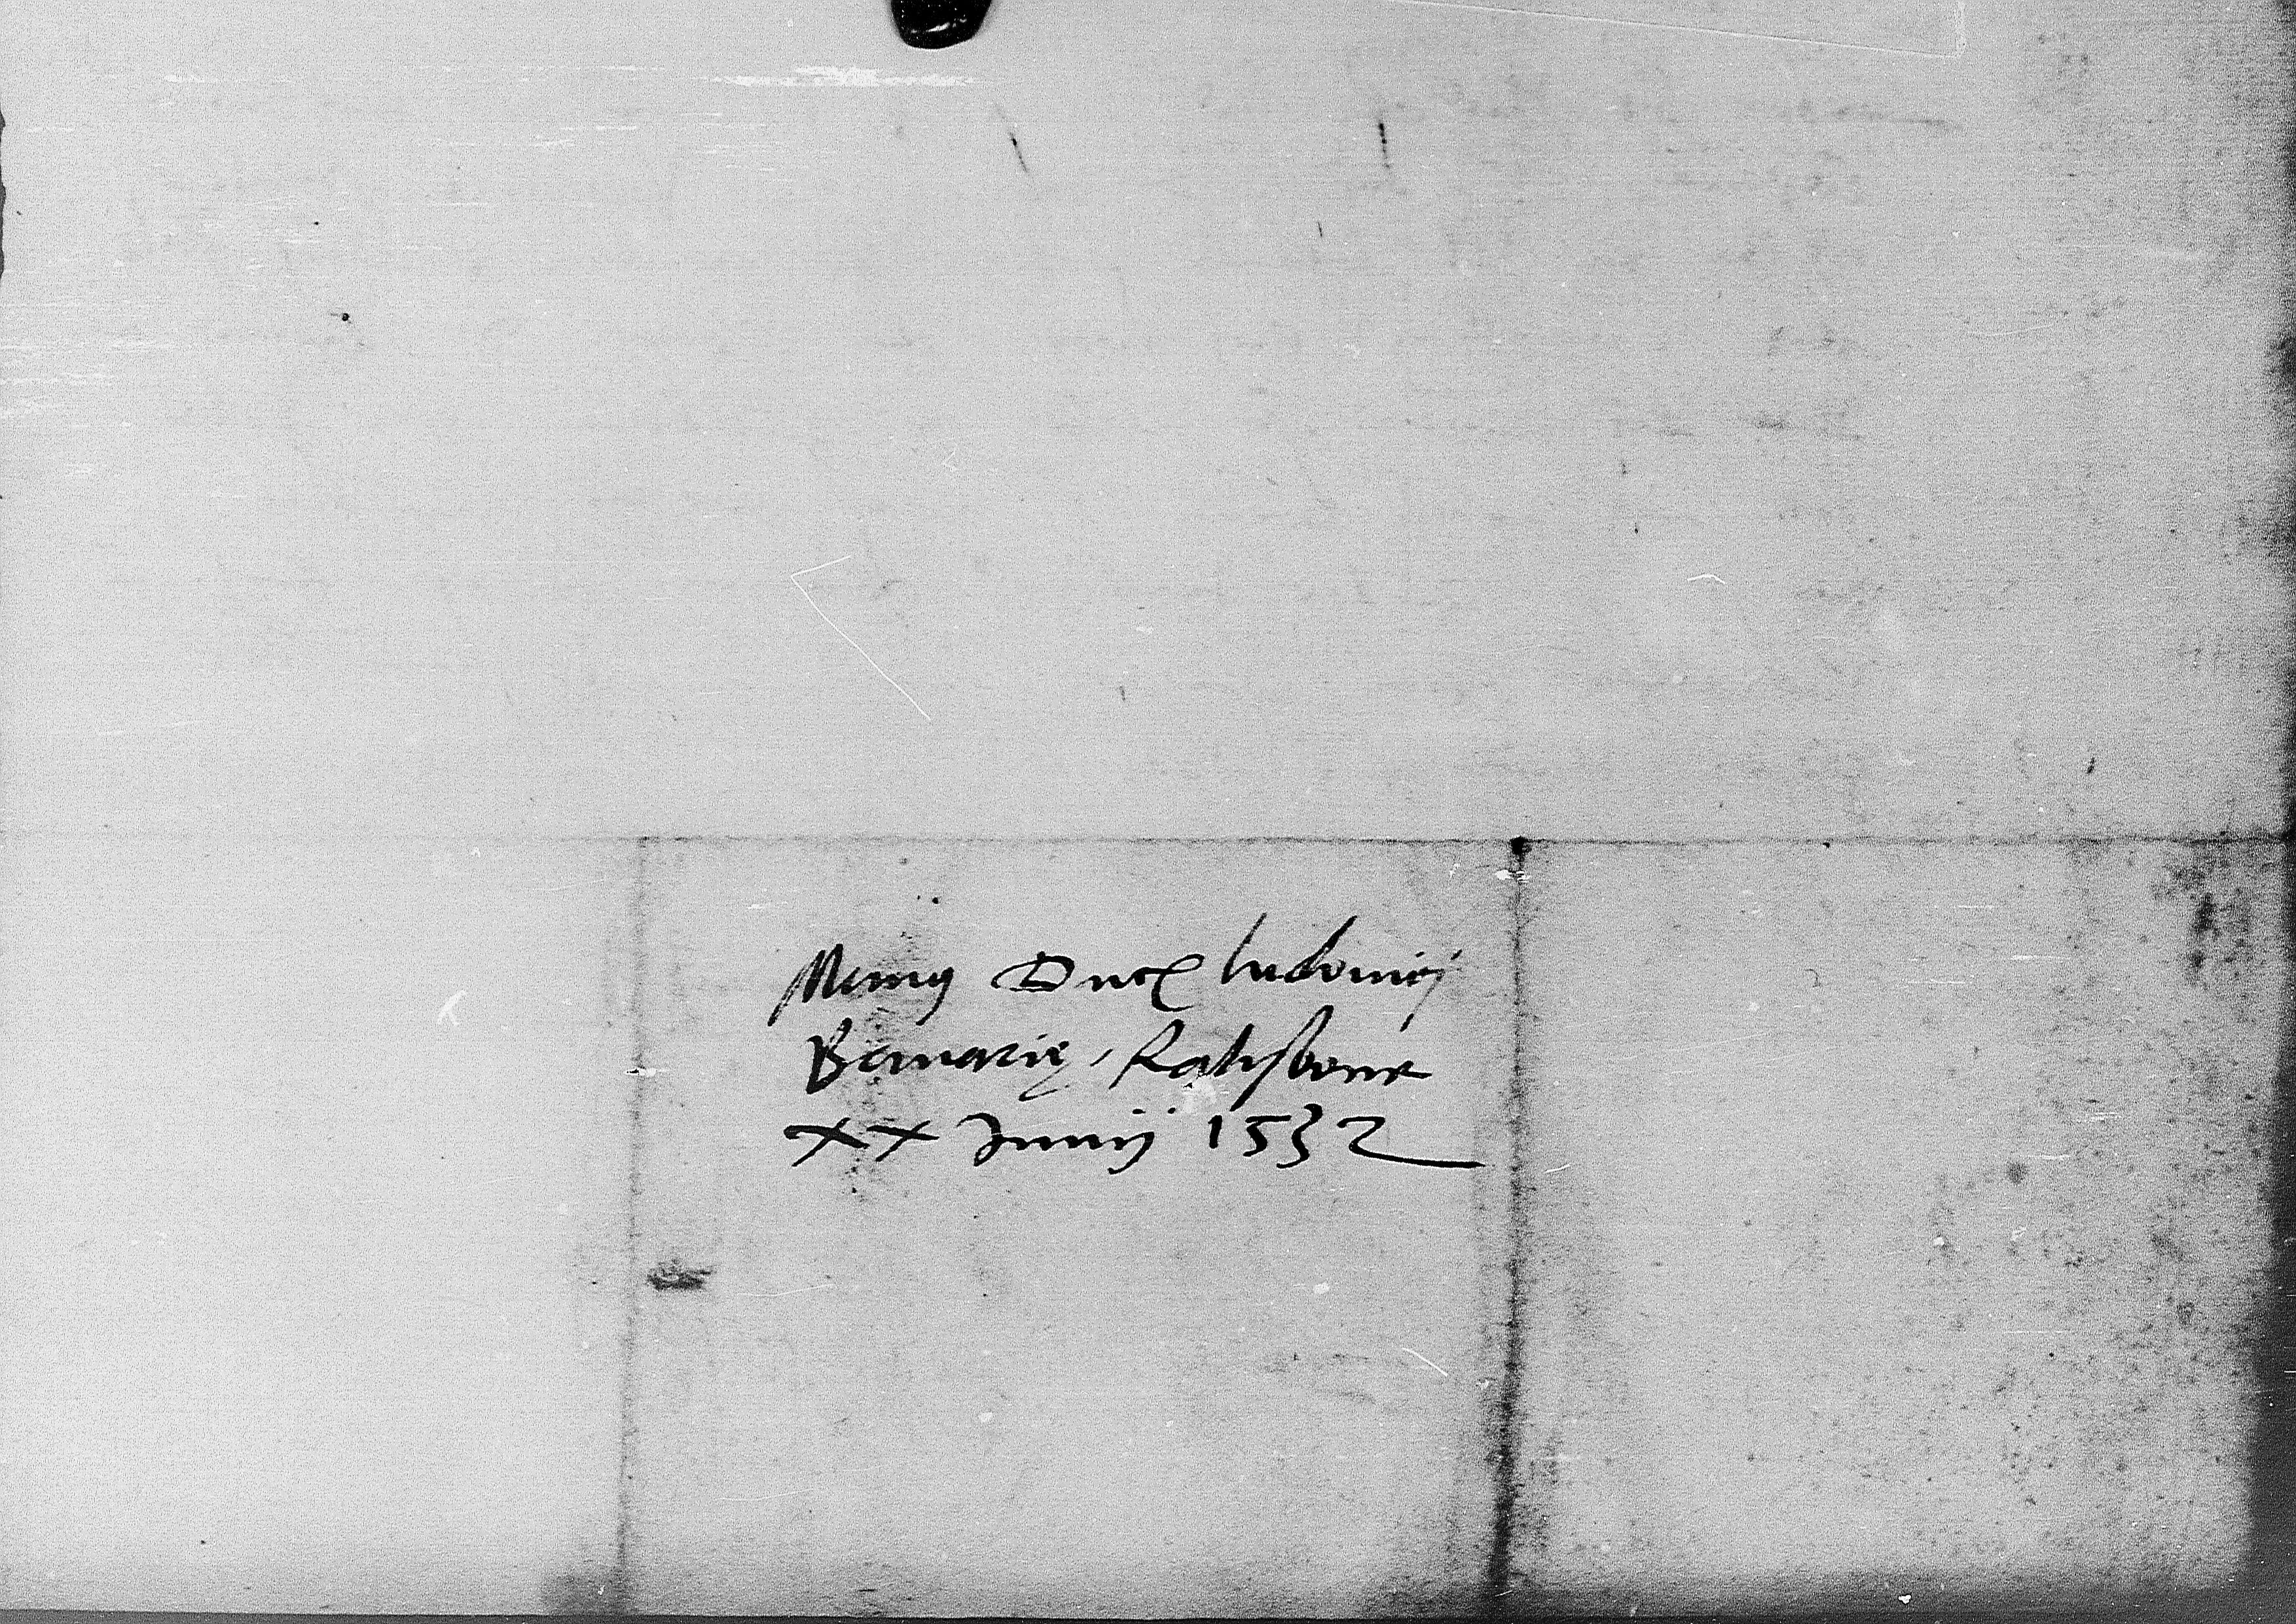 Ducis Ludovicj
Bavarię, Ratisbone
xx Junij 1532